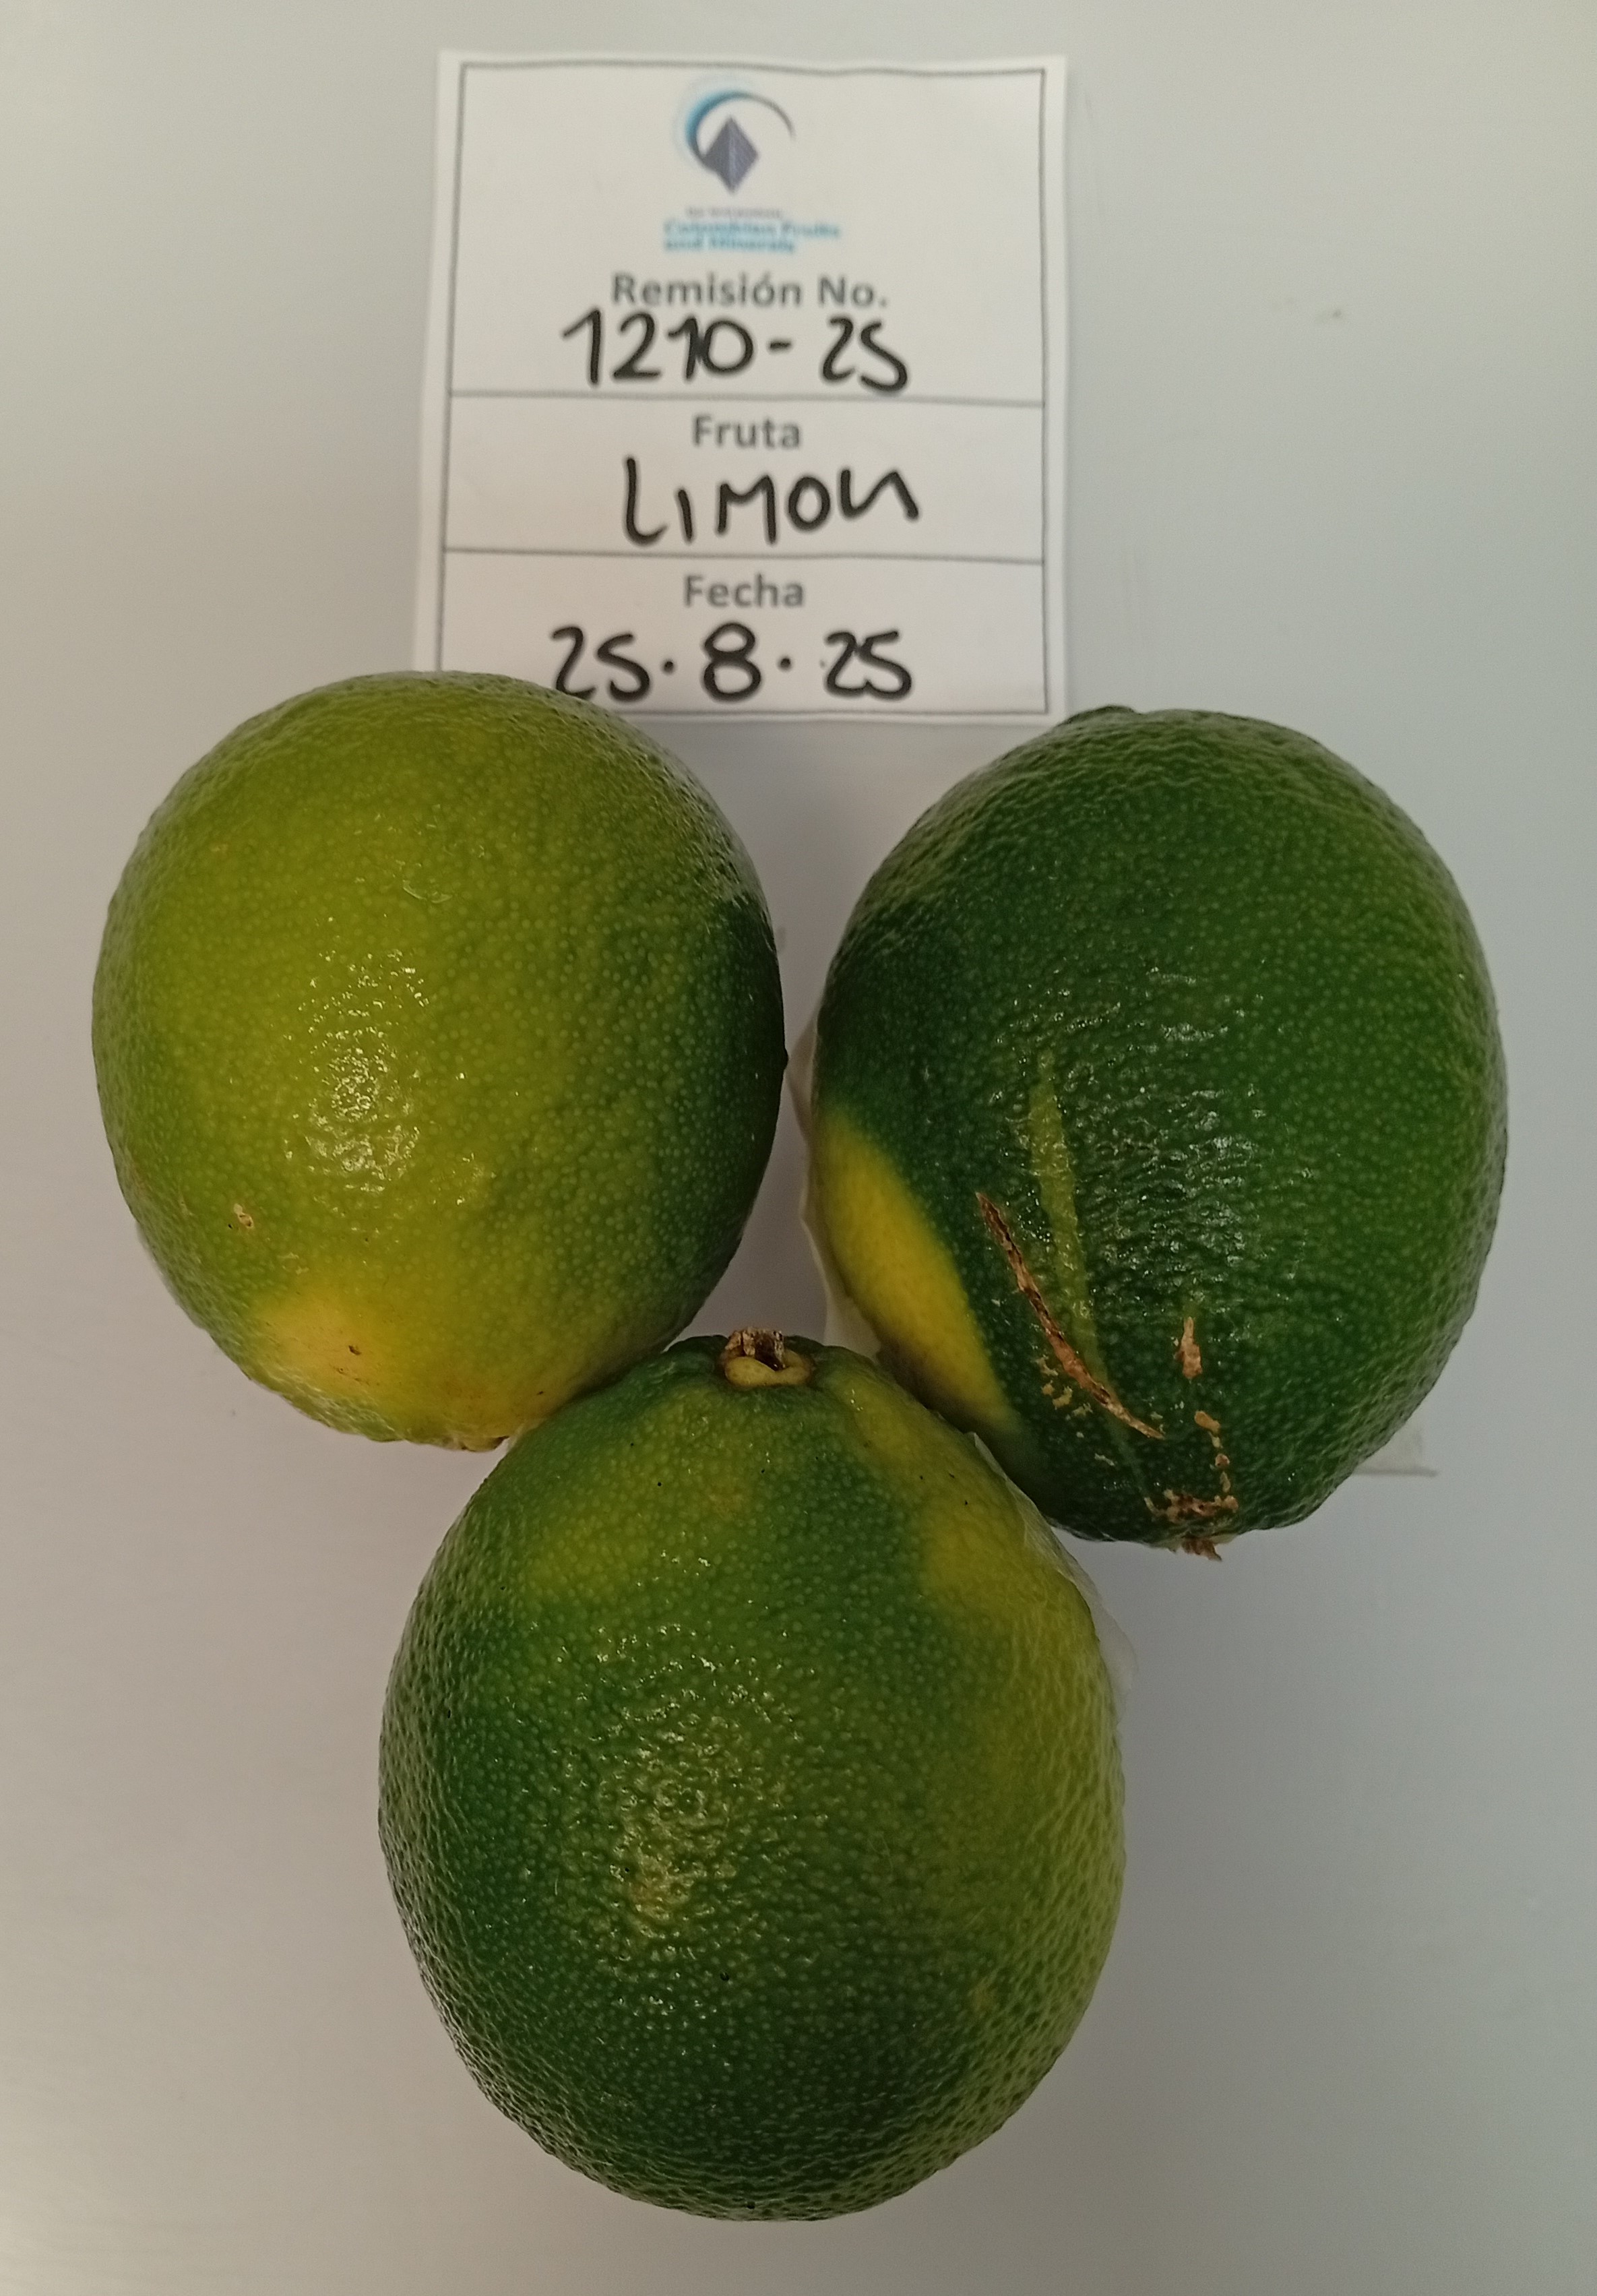 Colombian Fruits
and Minerals
Remisión No.
1210-25
Fruta
LIMON
Fecha
25.8.25